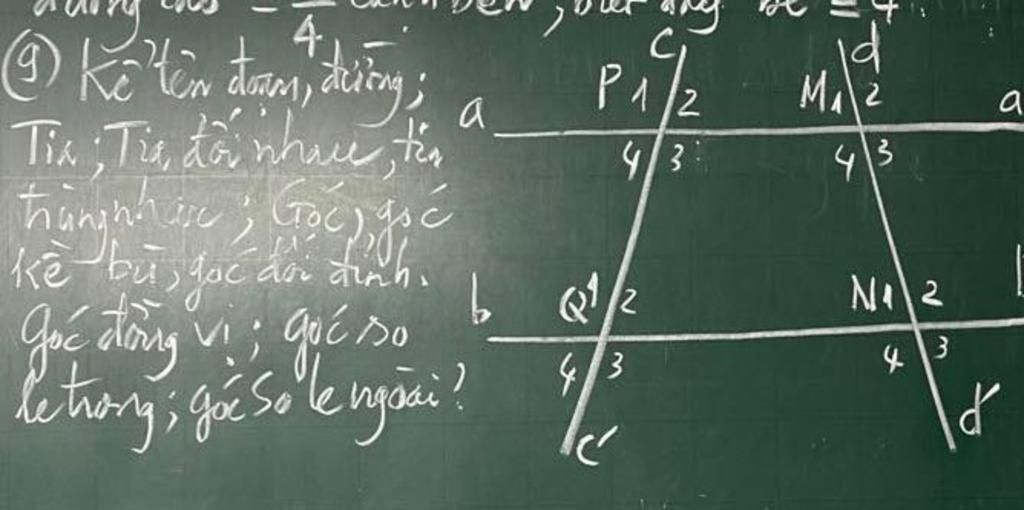 4
9) Kể tên đoạn, đường;
Tia; Tia đối nhau, tia
trùng nhau; Góc, góc
kề bù, góc đối đỉnh.
góc đồng vị; góc so
le trong; góc so le ngoài?
c d
P 1 2 M 1 2
a a
4 3 4 3
Q 1 2 N 1 2
b
4 3 4 3
c' d'